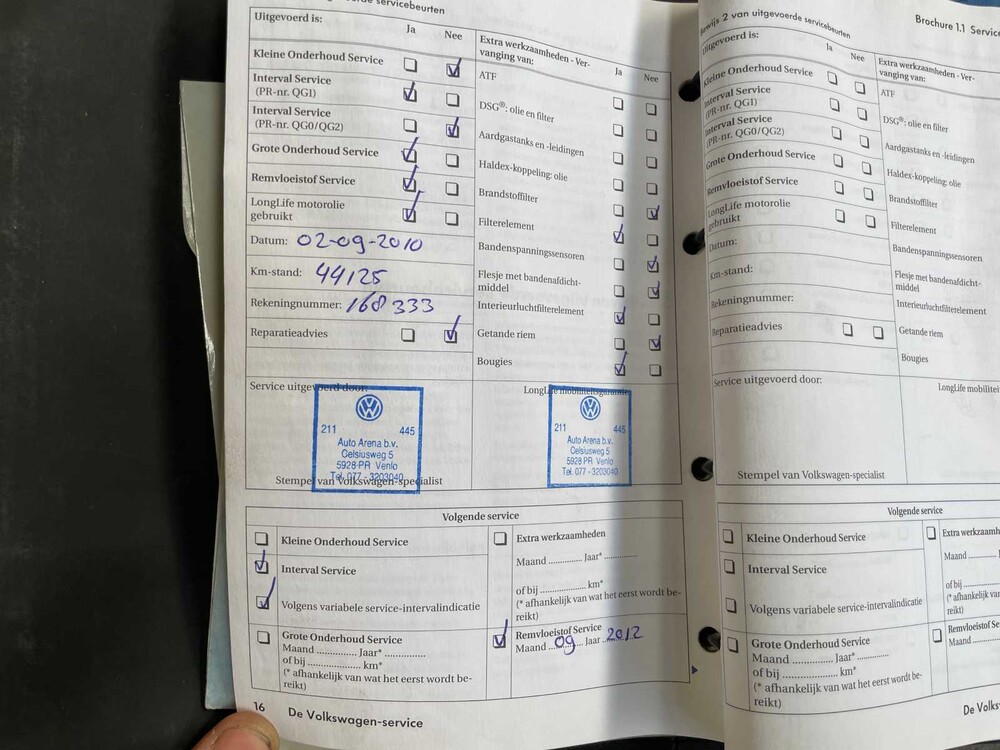 de servicebeurten
Uitgevoerd is:
Ja Nee
Kleine Onderhoud Service
Interval Service
(PR-nr. QG1)
Interval Service
(PR-nr. QG0/QG2)
Grote Onderhoud Service
Remvloeistof Service
LongLife motorolie
gebruikt
Datum: 02-09-2010
Km-stand: 44125
Rekeningnummer: 168333
Reparatieadvies
Extra werkzaamheden - Ver-
vanging van:
Ja Nee
ATF
DSG®: olie en filter
Aardgastanks en -leidingen
Haldex-koppeling: olie
Brandstoffilter
Filterelement
Bandenspanningssensoren
Flesje met bandenafdicht-
middel
Interieurluchtfilterelement
Getande riem
Bougies
Service uitgevoerd door:
211 445
Auto Arena b.v.
Celsiusweg 5
5928 PR Venlo
Tel. 077 - 3203040
Stempel van Volkswagen-specialist
LongLife mobiliteitsgarantie
211 445
Auto Arena b.v.
Celsiusweg 5
5928 PR Venlo
Tel. 077 - 3203040
Volgende service
Kleine Onderhoud Service
Interval Service
Volgens variabele service-intervalindicatie
Grote Onderhoud Service
Maand ............ Jaar* ............
of bij ............ km*
(* afhankelijk van wat het eerst wordt be-
reikt)
Extra werkzaamheden
Maand ............ Jaar* ............
of bij ............ km*
(* afhankelijk van wat het eerst wordt be-
reikt)
Remvloeistof Service
Maand 09 Jaar 2012
16 De Volkswagen-service
Brochure 1.1 Service
Bewijs 2 van uitgevoerde servicebeurten
Uitgevoerd is:
Ja Nee
Kleine Onderhoud Service
Interval Service
(PR-nr. QG1)
Interval Service
(PR-nr. QG0/QG2)
Grote Onderhoud Service
Remvloeistof Service
LongLife motorolie
gebruikt
Datum:
Km-stand:
Rekeningnummer:
Reparatieadvies
Extra werkzaamheden - Ver-
vanging van:
ATF
DSG®: olie en filter
Aardgastanks en -leidingen
Haldex-koppeling: olie
Brandstoffilter
Filterelement
Bandenspanningssensoren
Flesje met bandenafdicht-
middel
Interieurluchtfilterelement
Getande riem
Bougies
Service uitgevoerd door:
LongLife mobilite
Stempel van Volkswagen-specialist
Volgende service
Kleine Onderhoud Service
Interval Service
Volgens variabele service-intervalindicatie
Grote Onderhoud Service
Maand ............ Jaar* ............
of bij ............ km*
(* afhankelijk van wat het eerst wordt be-
reikt)
Extra werkzaamh
Maand ............
of bij ............
(* afhankelijk van
reikt)
Remvloeistof Se
Maand ............
De Volks